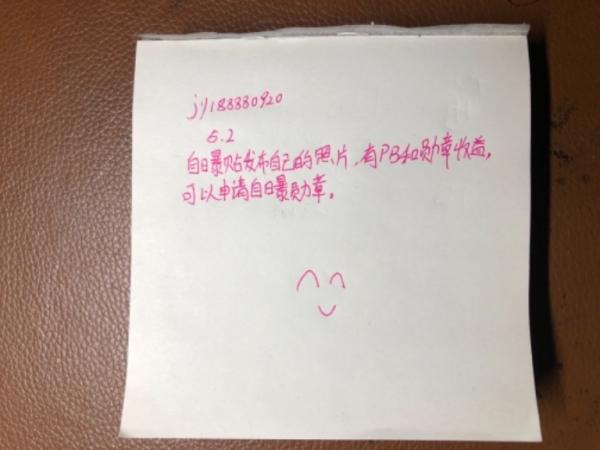 jyl88880920
5.2
自曝贴发布自己的照片,有PB和勋章收益,
可以申请自曝勋章。